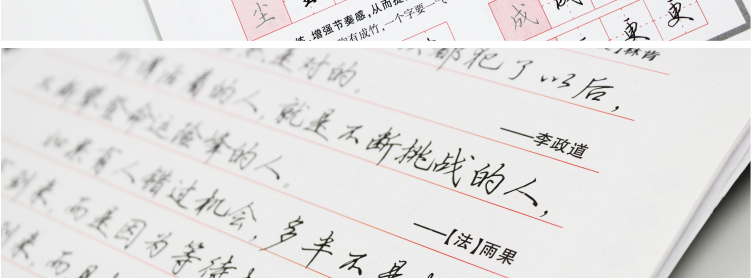 尘
增强节奏感,从而提
有成竹,一个字要一气
成
更 更
林肯
都犯了以后,
是对的。
——李政道
所谓活着的人,就是不断挑战的人,
不断攀登命运险峰的人。
——【法】雨果
如果有人错过机会,多半不是
到来,而是因为等待
到来,而是